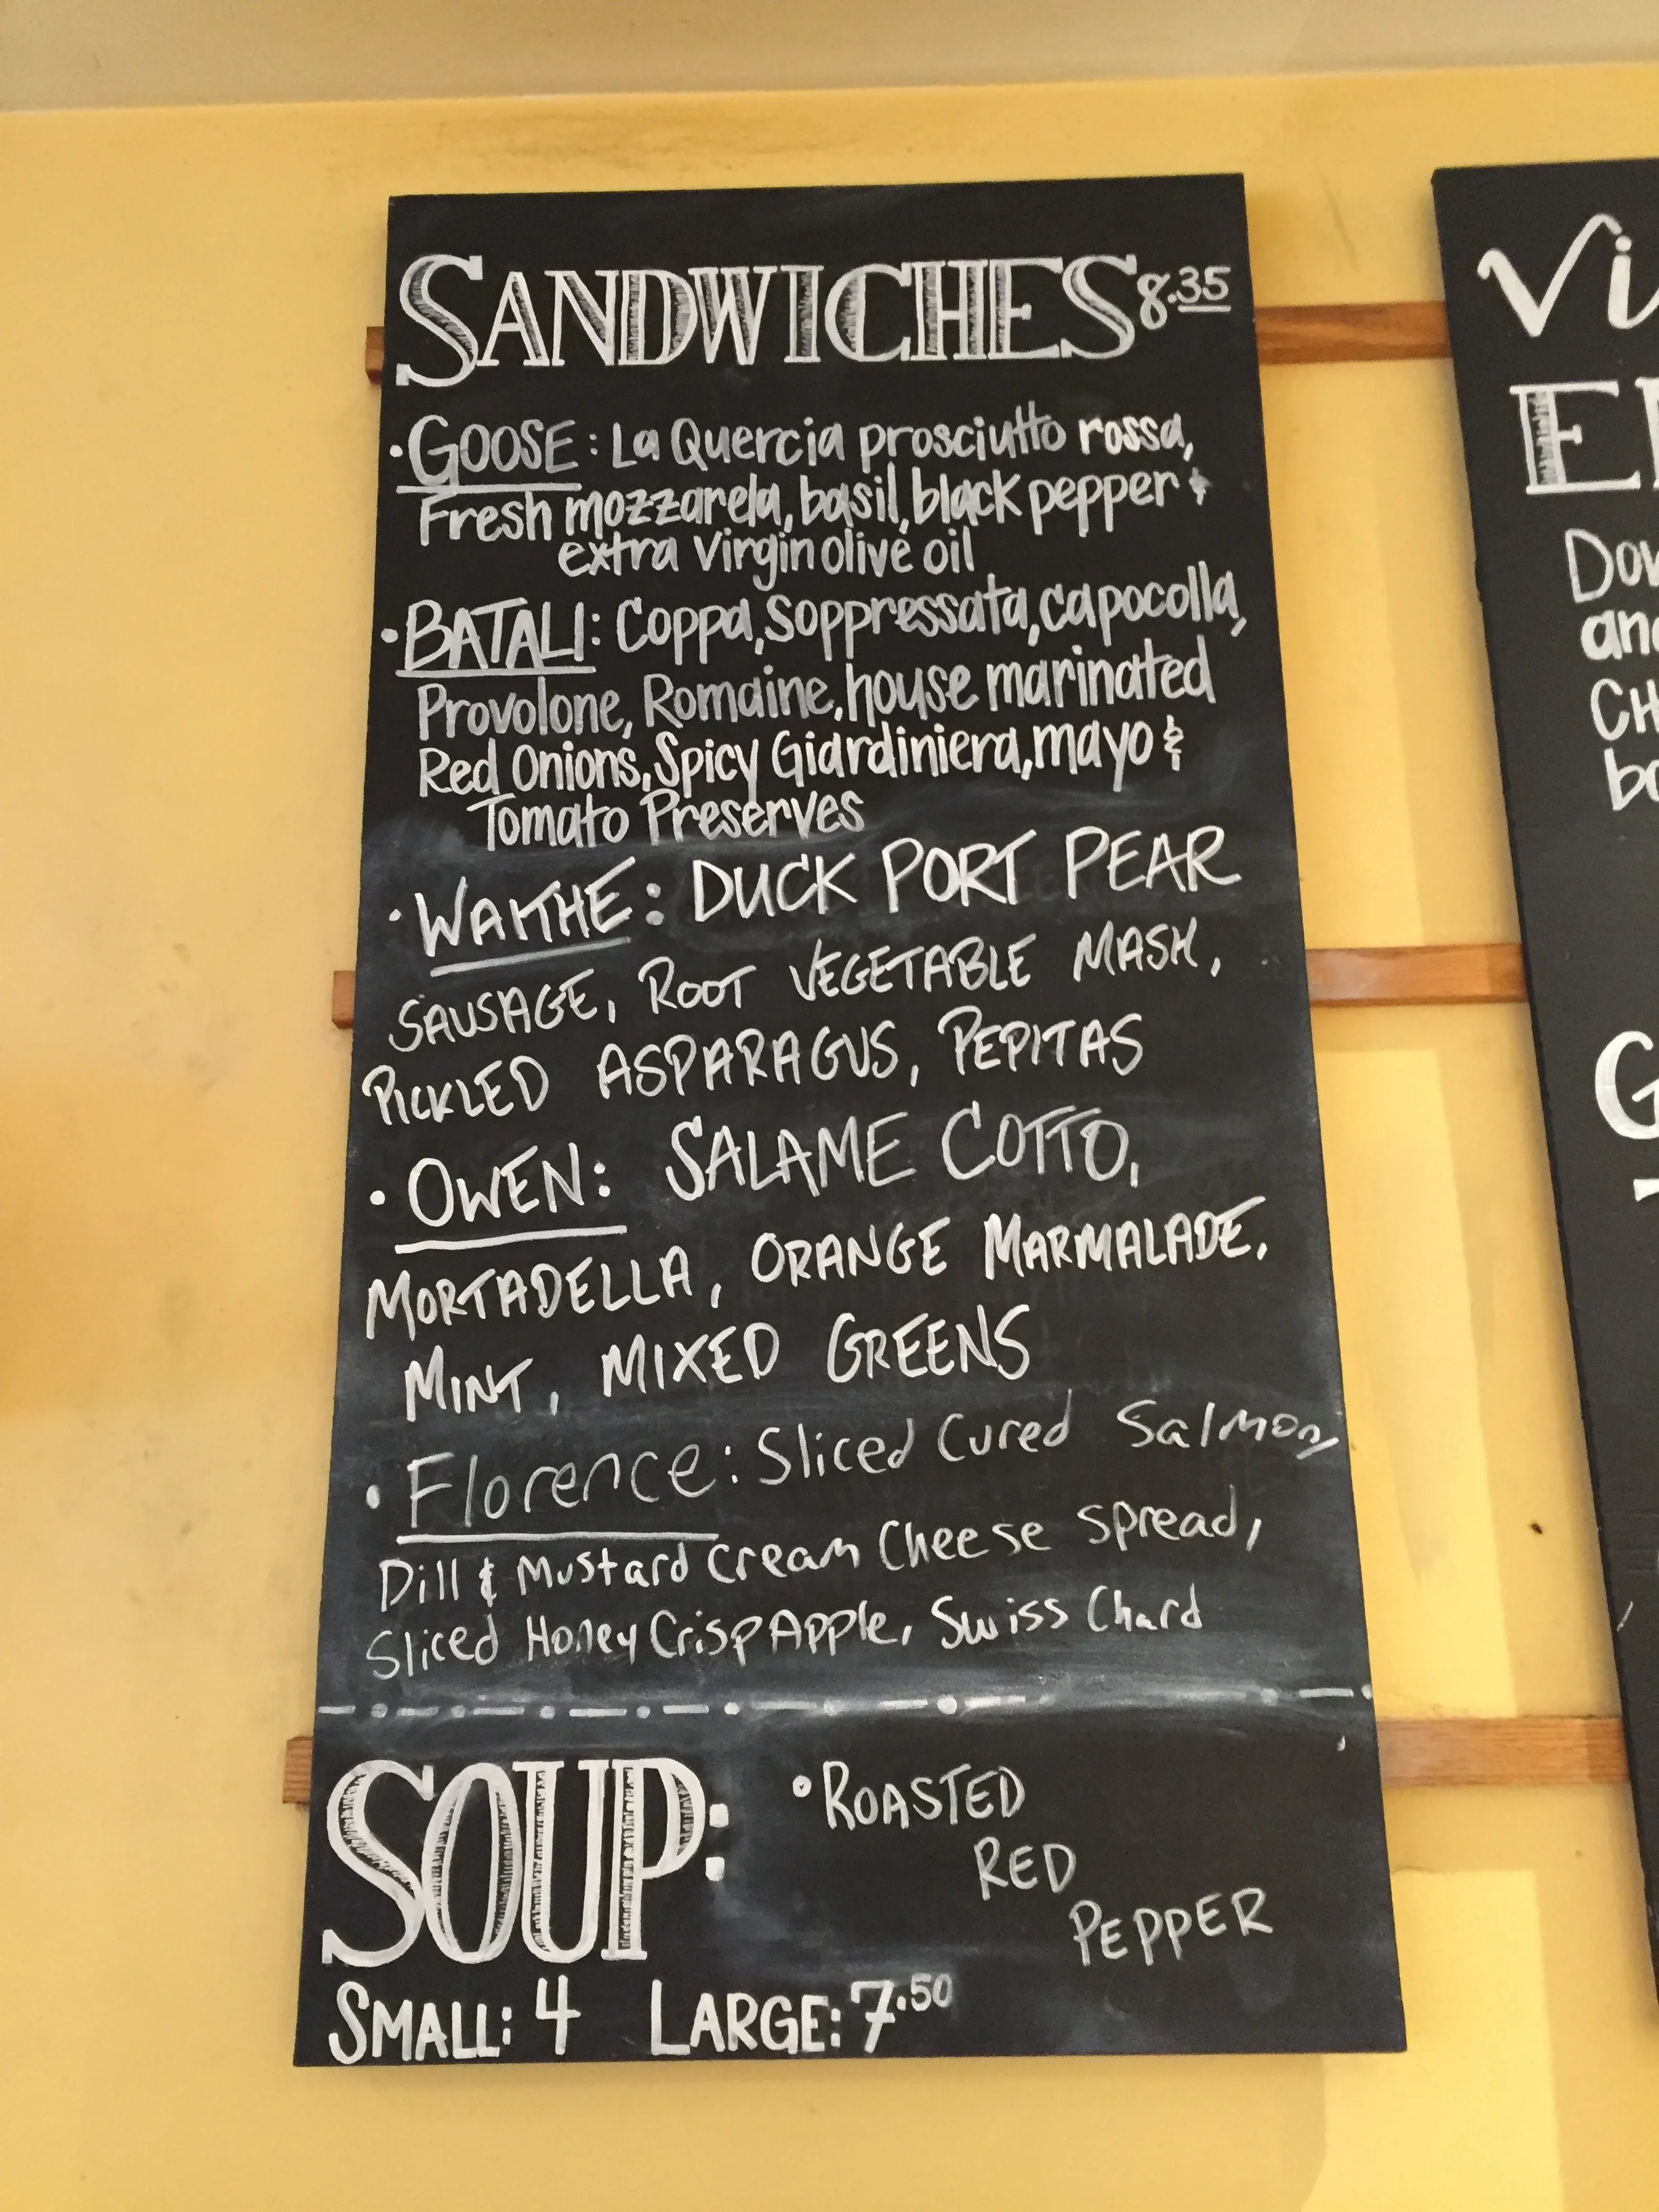 SANDWICHES 8.35
• GOOSE: La Quercia prosciutto rossa,
Fresh mozzarela, basil, black pepper &
extra Virgin olive oil
• BATALI: Coppa, Soppressata, capocolla,
Provolone, Romaine, house marinated
Red Onions, Spicy Giardiniera, mayo &
Tomato Preserves
• WAITHE: DUCK PORT PEAR
SAUSAGE, ROOT VEGETABLE MASH,
PICKLED ASPARAGUS, PEPITAS
• OWEN: SALAME COTTO,
MORTADELLA, ORANGE MARMALADE,
MINT, MIXED GREENS
• Florence: Sliced Cured Salmon,
Dill & Mustard Cream Cheese Spread,
Sliced HoneyCrisp Apple, Swiss Chard
SOUP: • ROASTED
RED
PEPPER
SMALL: 4 LARGE: 7.50
Vi
E
Dow
and
CH
bo
G